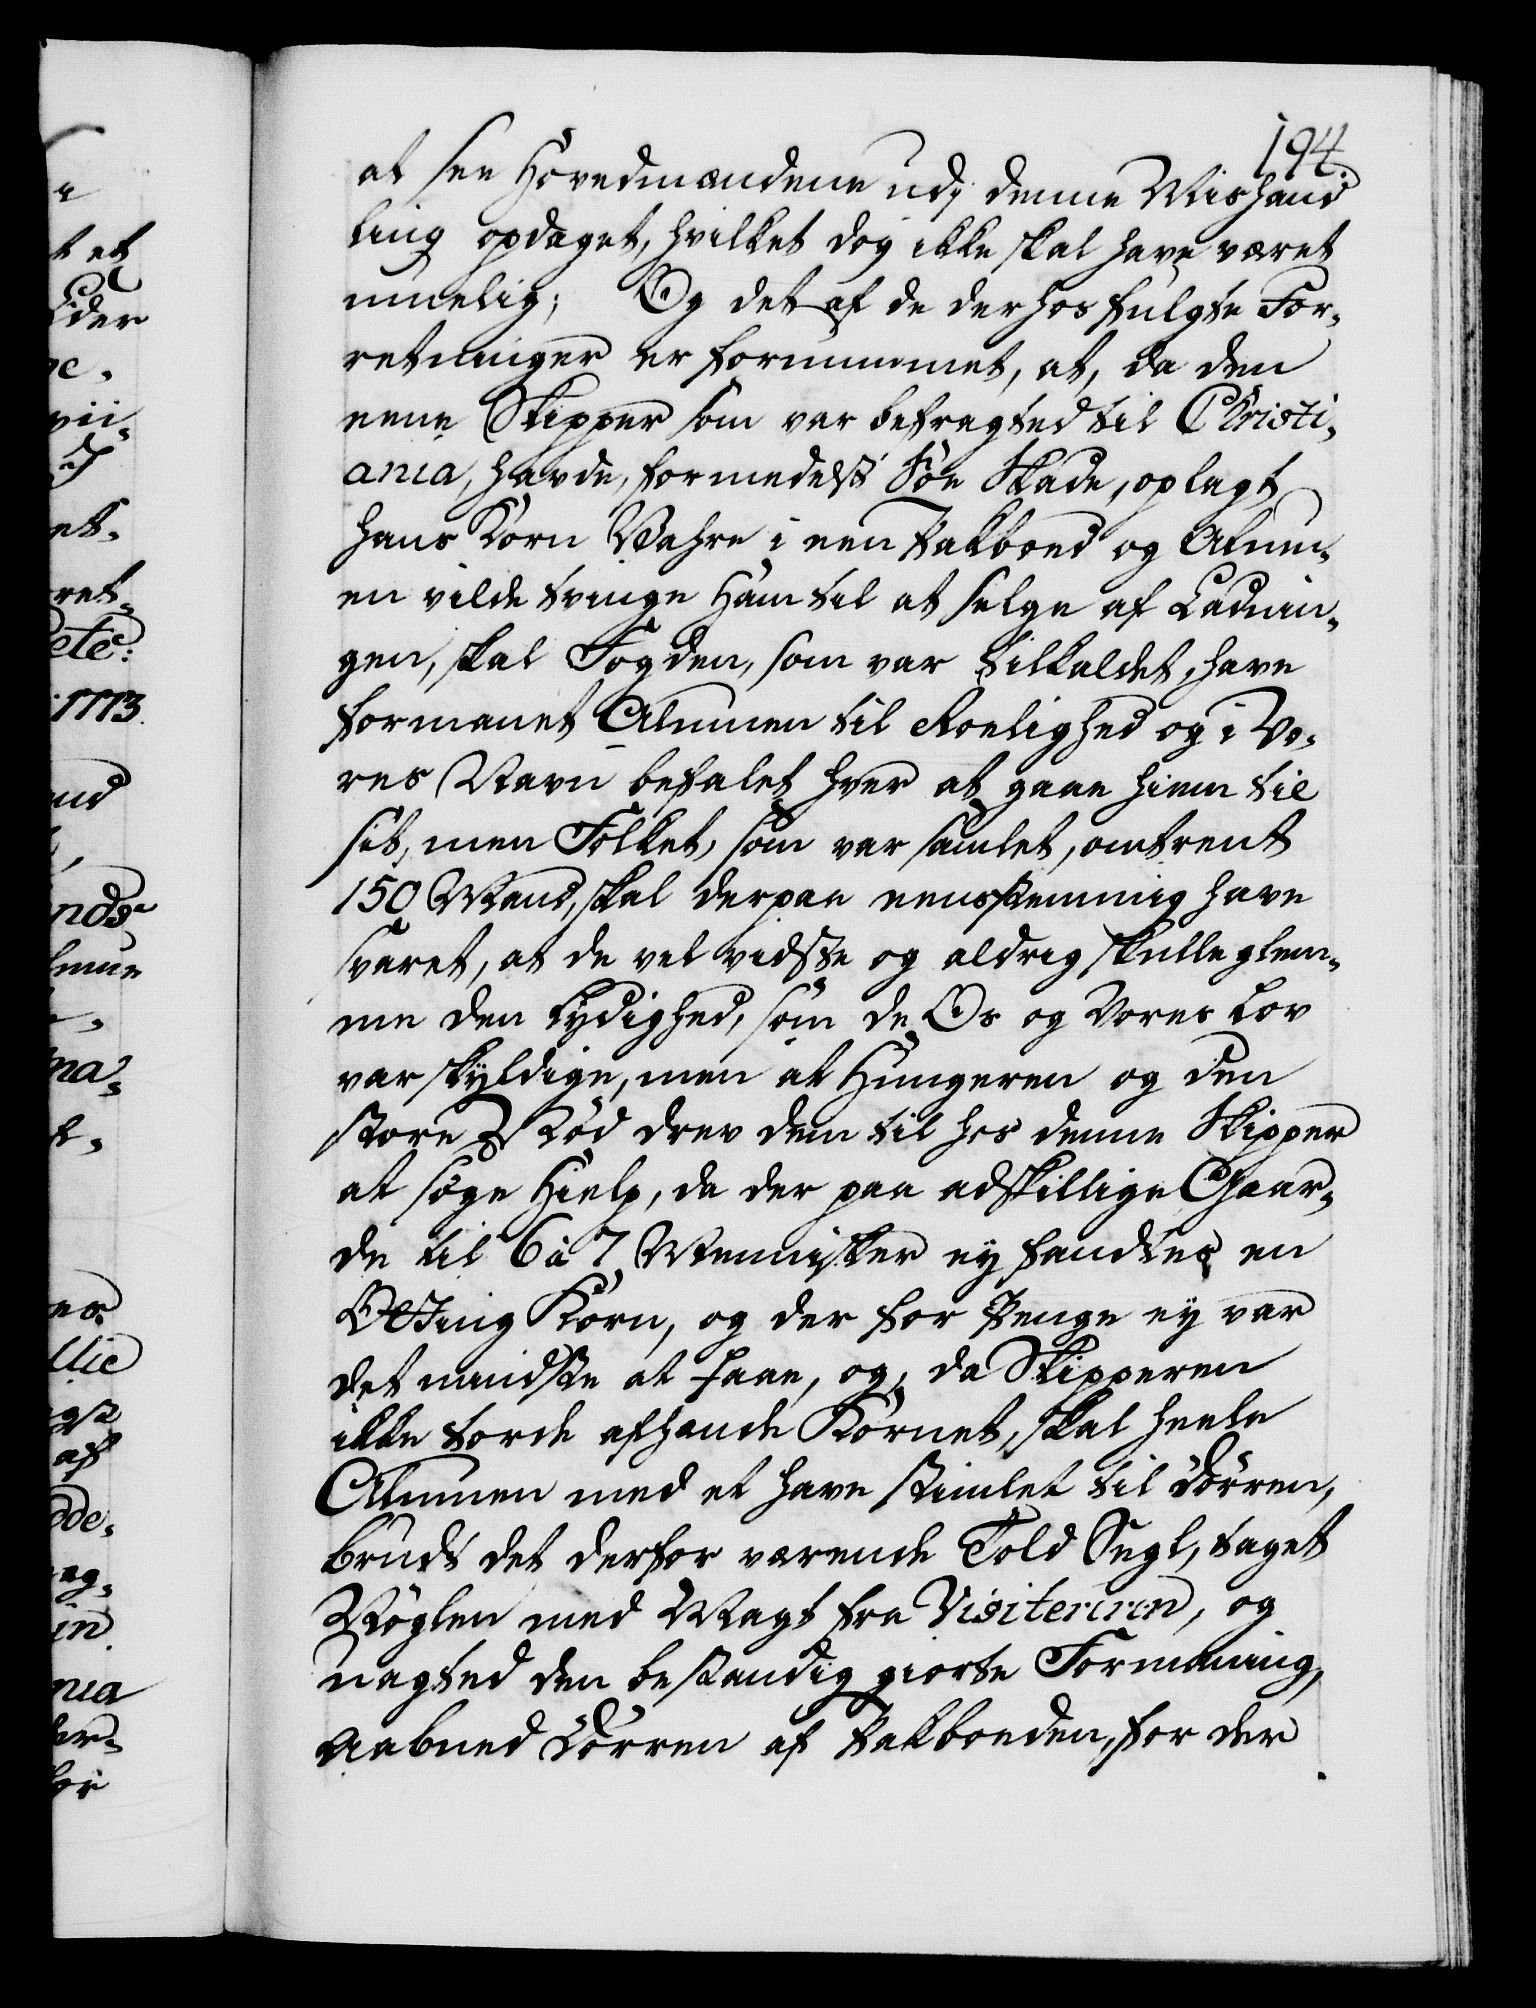 194.
at see Hovedmændene udj denne Mishand
ling opdaget, hvilket dog ikke skal have været
muelig; Og det af de derhos fulgte For„
retninger er fornummet, at, da den
eene Skipper som var befragted til Christi„
ania, havde, formedelst Söe Skade, oplagt
hans Korn Vahre i een Pakboed og Almu„
en vilde tvinge Ham til at selge af Ladnin„
gen, skal Fogden, som var tilkaldet, have
formanet Almuen til Roelighed og i Vo„
res Navn befalet hver at gaae hiem til
sit, men Folket, som var samlet, omtrent
150 Mand, skal derpaa eensstemmig have
svaret, at de vel vidste og aldrig skulle glem„
me den Lydighed, som de Os og Vores Lov
var skyldige, men at Hungeren og den
store Nöd drev dem til hos denne Skipper
at søge Hielp, da der paa adskillige Gaar„
de til 6 à 7 Mennisker ey fandtes en
Otting Korn, og der for Penge ey var
det mindste at faae, og, da Skipperen
ikke torde afhænde Kornet, skal heele
Almuen med et have stimlet til Dörren,
brudt det derfor værende Told Segl, taget
Nöglen med Magt fra Visiteuren, og
uagted den bestandig giorte Formaning,
Aabned Dörren af Pakboeden, for der
et
Eder
et„
ret„
etc:
1773.
and
af
in
nia